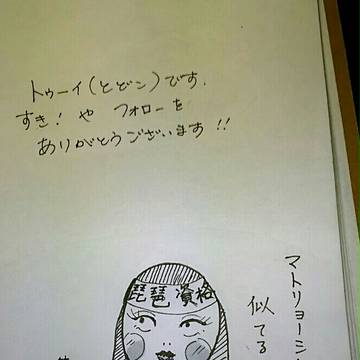 トゥーイ(とどン)です.
すき! や フォローを
ありがとうございます!!
琵琶 資格
マトリョーシ
似てる